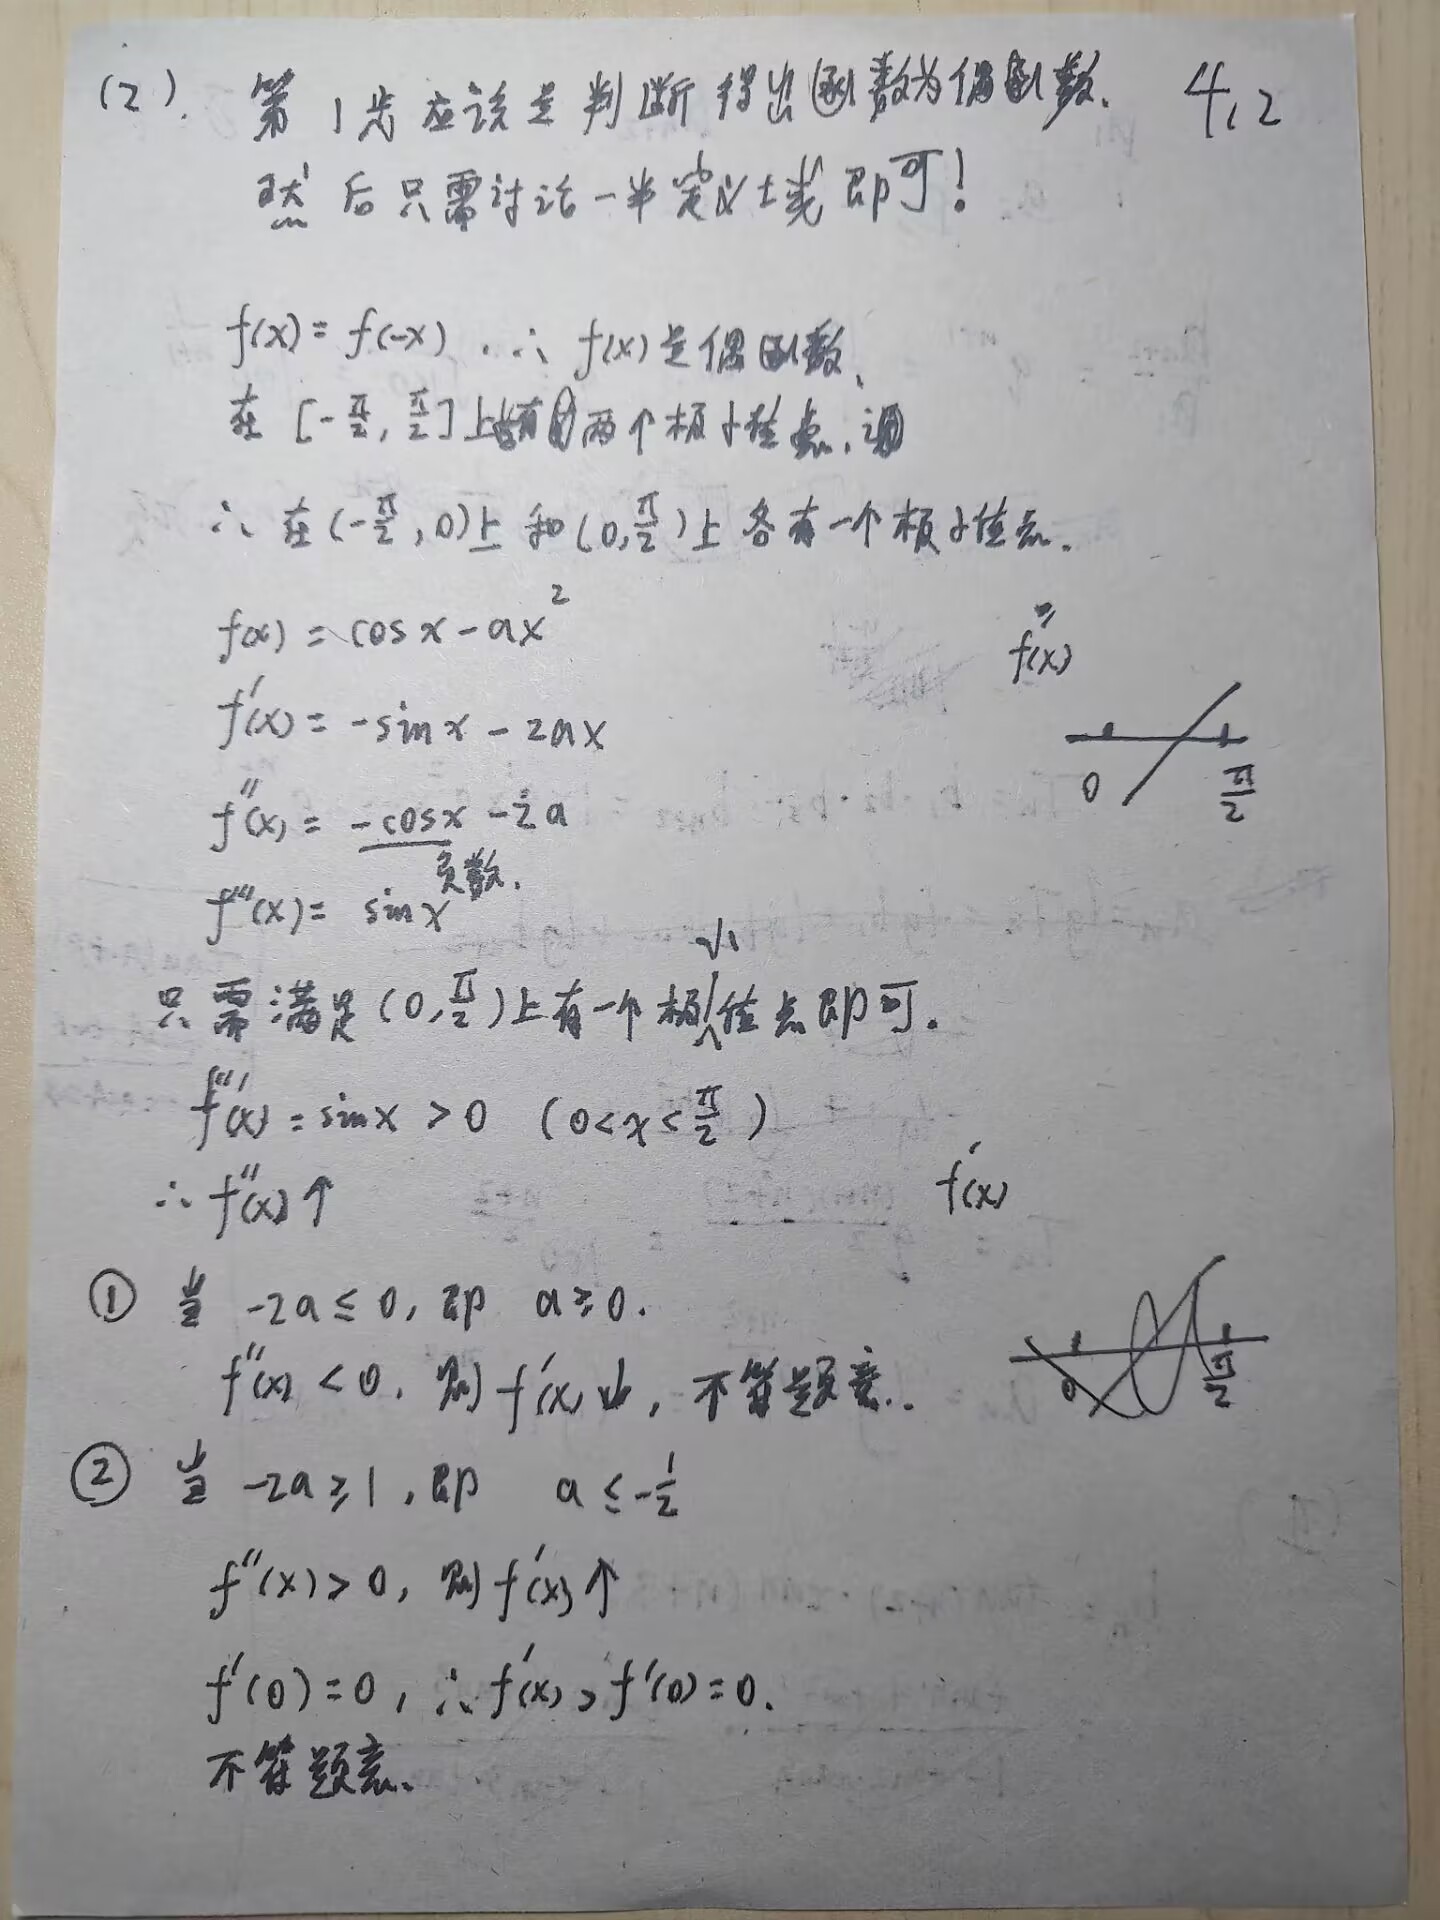 (2). 第1步应该是判断得出函数为偶函数. 4.2
然后只需讨论一半定义域即可!
f(x)=f(-x). ∴ f(x)是偶函数.
在[-π/2, π/2]上有两个极小值点.
∴ 在(-π/2, 0)上和(0, π/2)上各有一个极小值点.
f(x)=cosx-ax²
f''(x)
f'(x)=-sinx-2ax
0 π/2
f''(x)=-cosx-2a
负数.
f'''(x)=sinx
只需满足(0, π/2)上有一个极小值点即可.
f'''(x)=sinx>0 (0<x<π/2)
∴ f''(x)↑ f'(x)
① 当 -2a≤0, 即 a≥0.
f''(x)<0, 则f'(x)↓, 不符题意.
0 π/2
② 当 -2a≥1, 即 a≤-1/2
f''(x)>0, 则f'(x)↑
f'(0)=0, ∴ f'(x)>f'(0)=0.
不符题意.